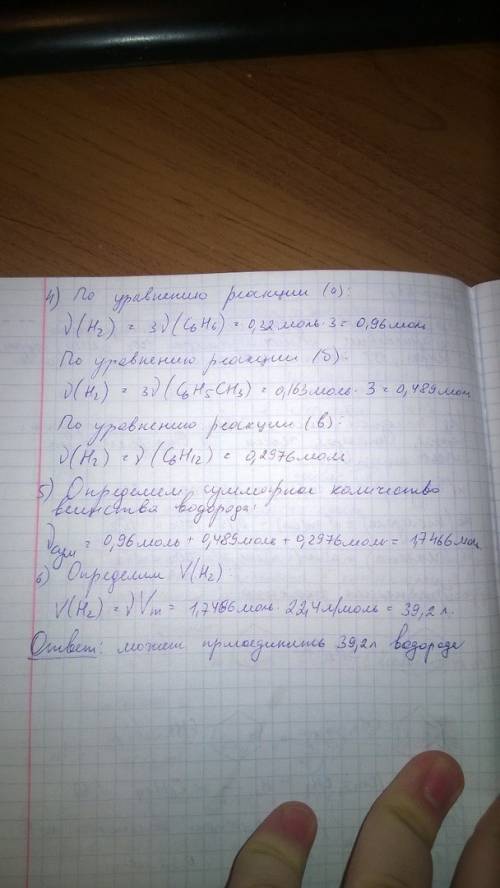 4) По уравнению реакции (а):
ν(H₂) = 3ν(C₆H₆) = 0,32моль·3 = 0,96мол
По уравнению реакции (б):
ν(H₂) = 3ν(C₆H₅CH₃) = 0,163моль·3 = 0,489мол
По уравнению реакции (в):
ν(H₂) = ν(C₆H₁₂) = 0,2976мол
5) Определим суммарное количество
вещества водорода:
νсум = 0,96моль + 0,489моль + 0,2976моль = 1,7466мол
6) Определим V(H₂):
V(H₂) = νVm = 1,7466моль·22,4л/моль = 39,2 л.
Ответ: может присоединить 39,2л водорода